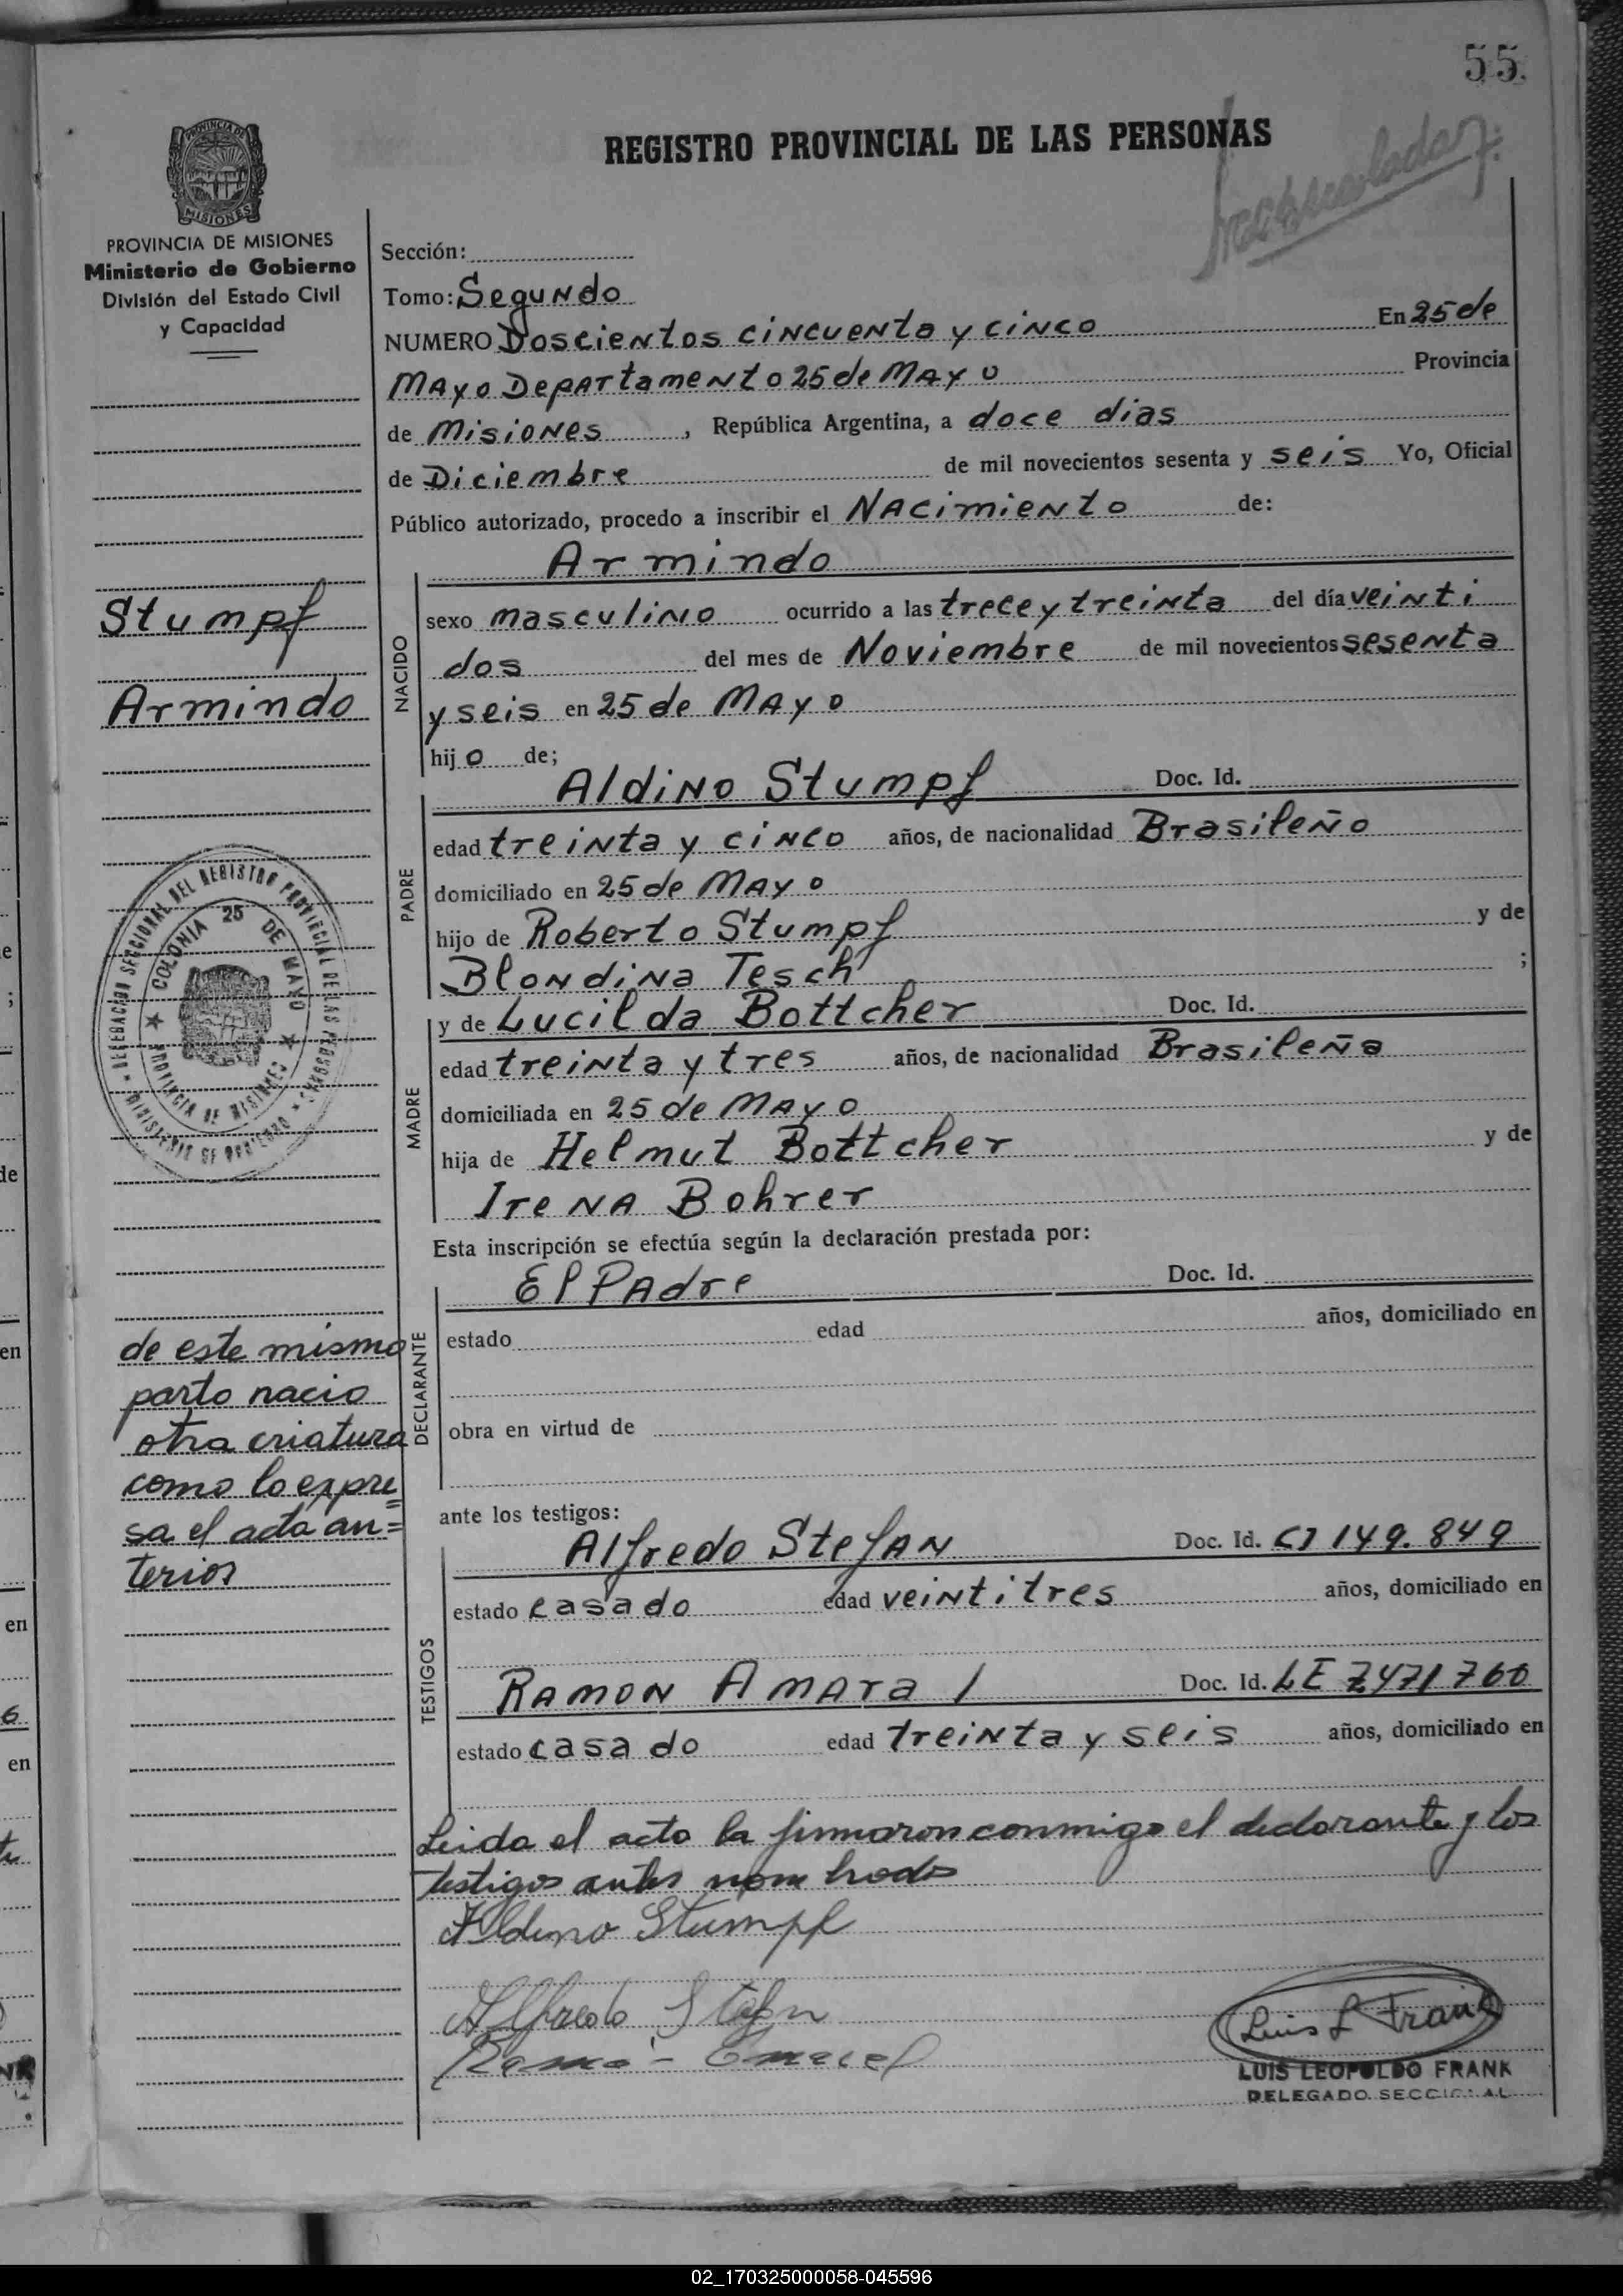 55.
REGISTRO PROVINCIAL DE LAS PERSONAS
PROVINCIA DE
MISIONES
PROVINCIA DE MISIONES
Ministerio de Gobierno
División del Estado Civil
y Capacidad
Sección:
Tomo: Segundo
NUMERO Doscientos cincuenta y cinco En 25 de
Mayo Departamento 25 de Mayo Provincia
de Misiones, República Argentina, a doce dias
de Diciembre de mil novecientos sesenta y seis Yo, Oficial
Público autorizado, procedo a inscribir el Nacimiento de:
Armindo
Stumpf
Armindo
NACIDO
sexo masculino ocurrido a las trece y treinta del día veinti
dos del mes de Noviembre de mil novecientos sesenta
y seis en 25 de Mayo
hijo de;
PADRE
Aldino Stumpf Doc. Id.
edad treinta y cinco años, de nacionalidad Brasileño
domiciliado en 25 de Mayo
hijo de Roberto Stumpf y de
Blondina Tesch ;
DELEGACION SECCIONAL DEL REGISTRO PROVINCIAL DE LAS PERSONAS
MINISTERIO DE GOBIERNO
COLONIA 25 DE MAYO
PROVINCIA DE MISIONES
MADRE
y de Lucilda Bottcher Doc. Id.
edad treinta y tres años, de nacionalidad Brasileña
domiciliada en 25 de Mayo
hija de Helmut Bottcher y de
Irena Bohrer
Esta inscripción se efectúa según la declaración prestada por:
DECLARANTE
El Padre Doc. Id.
estado edad años, domiciliado en
obra en virtud de
de este mismo
parto nacio
otra criatura
como lo expre=
sa el acta an=
terior
ante los testigos:
TESTIGOS
Alfredo Stefan Doc. Id. CI 149.849
estado casado edad veintitres años, domiciliado en
Ramon Amaral Doc. Id. LE 7471760
estado casado edad treinta y seis años, domiciliado en
Leida el acta la firmaron conmigo el declarante y los
testigos antes nombrados
Aldino Stumpf
Alfredo Stefan
Luis L Frank
LUIS LEOPOLDO FRANK
DELEGADO SECCIONAL
02_170325000058-045596